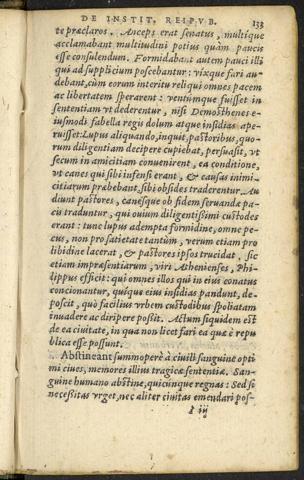 DE INSTIT. REIPVB. 133
te præclaros. Anceps erat senatus, multique
acclamabant multitudini potius quàm paucis
esse consulendum. Formidabant autem pauci illi
qui ad supplicium poscebantur: vixque fari au-
debat, cùm eorum interitu reliqui omnes pacem
ac libertatem sperarent: ventúmque fuisset in
sententiam vt dederentur, nisi Demosthenes e-
iusmodi fabella regis dolum atque insidias ape-
ruisset: Lupus aliquando, inquit, pastoribus, quo-
rum diligentiam decipere cupiebat, persuasit, vt
secum in amicitiam conuenirent, ea conditione,
vt canes qui sibi infensi erant, & causas inimi-
citiarum præbebant, sibi obsides traderentur. Au
diunt pastores, canésque ob fidem seruandæ pa-
cis traduntur, qui ouium diligentissimi custodes
erant: tunc lupus adempta formidine, omne pe-
cus, non pro satietate tantùm, verum etiam pro
libidine lacerat, & pastores ipsos trucidat, sic
etiam impræsentiarum, viri Athenienses, Phi-
lippus efficit: qui omnes illos qui in eius conatus
concionantur, quíque eius insidias pandunt, de-
poscit, quò facilius vrbem custodibus spoliatam
inuadere ac diripere possit. Actum siquidem est
de ea ciuitate, in qua non licet fari ea quæ è repu
blica esse possunt.
Abstineant summoperè à ciuili sanguine opti
mi ciues, memores illius tragicæ sententiæ. San-
guine humano abstine, quicunque regnas: Sed si
necessitas vrget, nec aliter ciuitas emendari pos-
iij